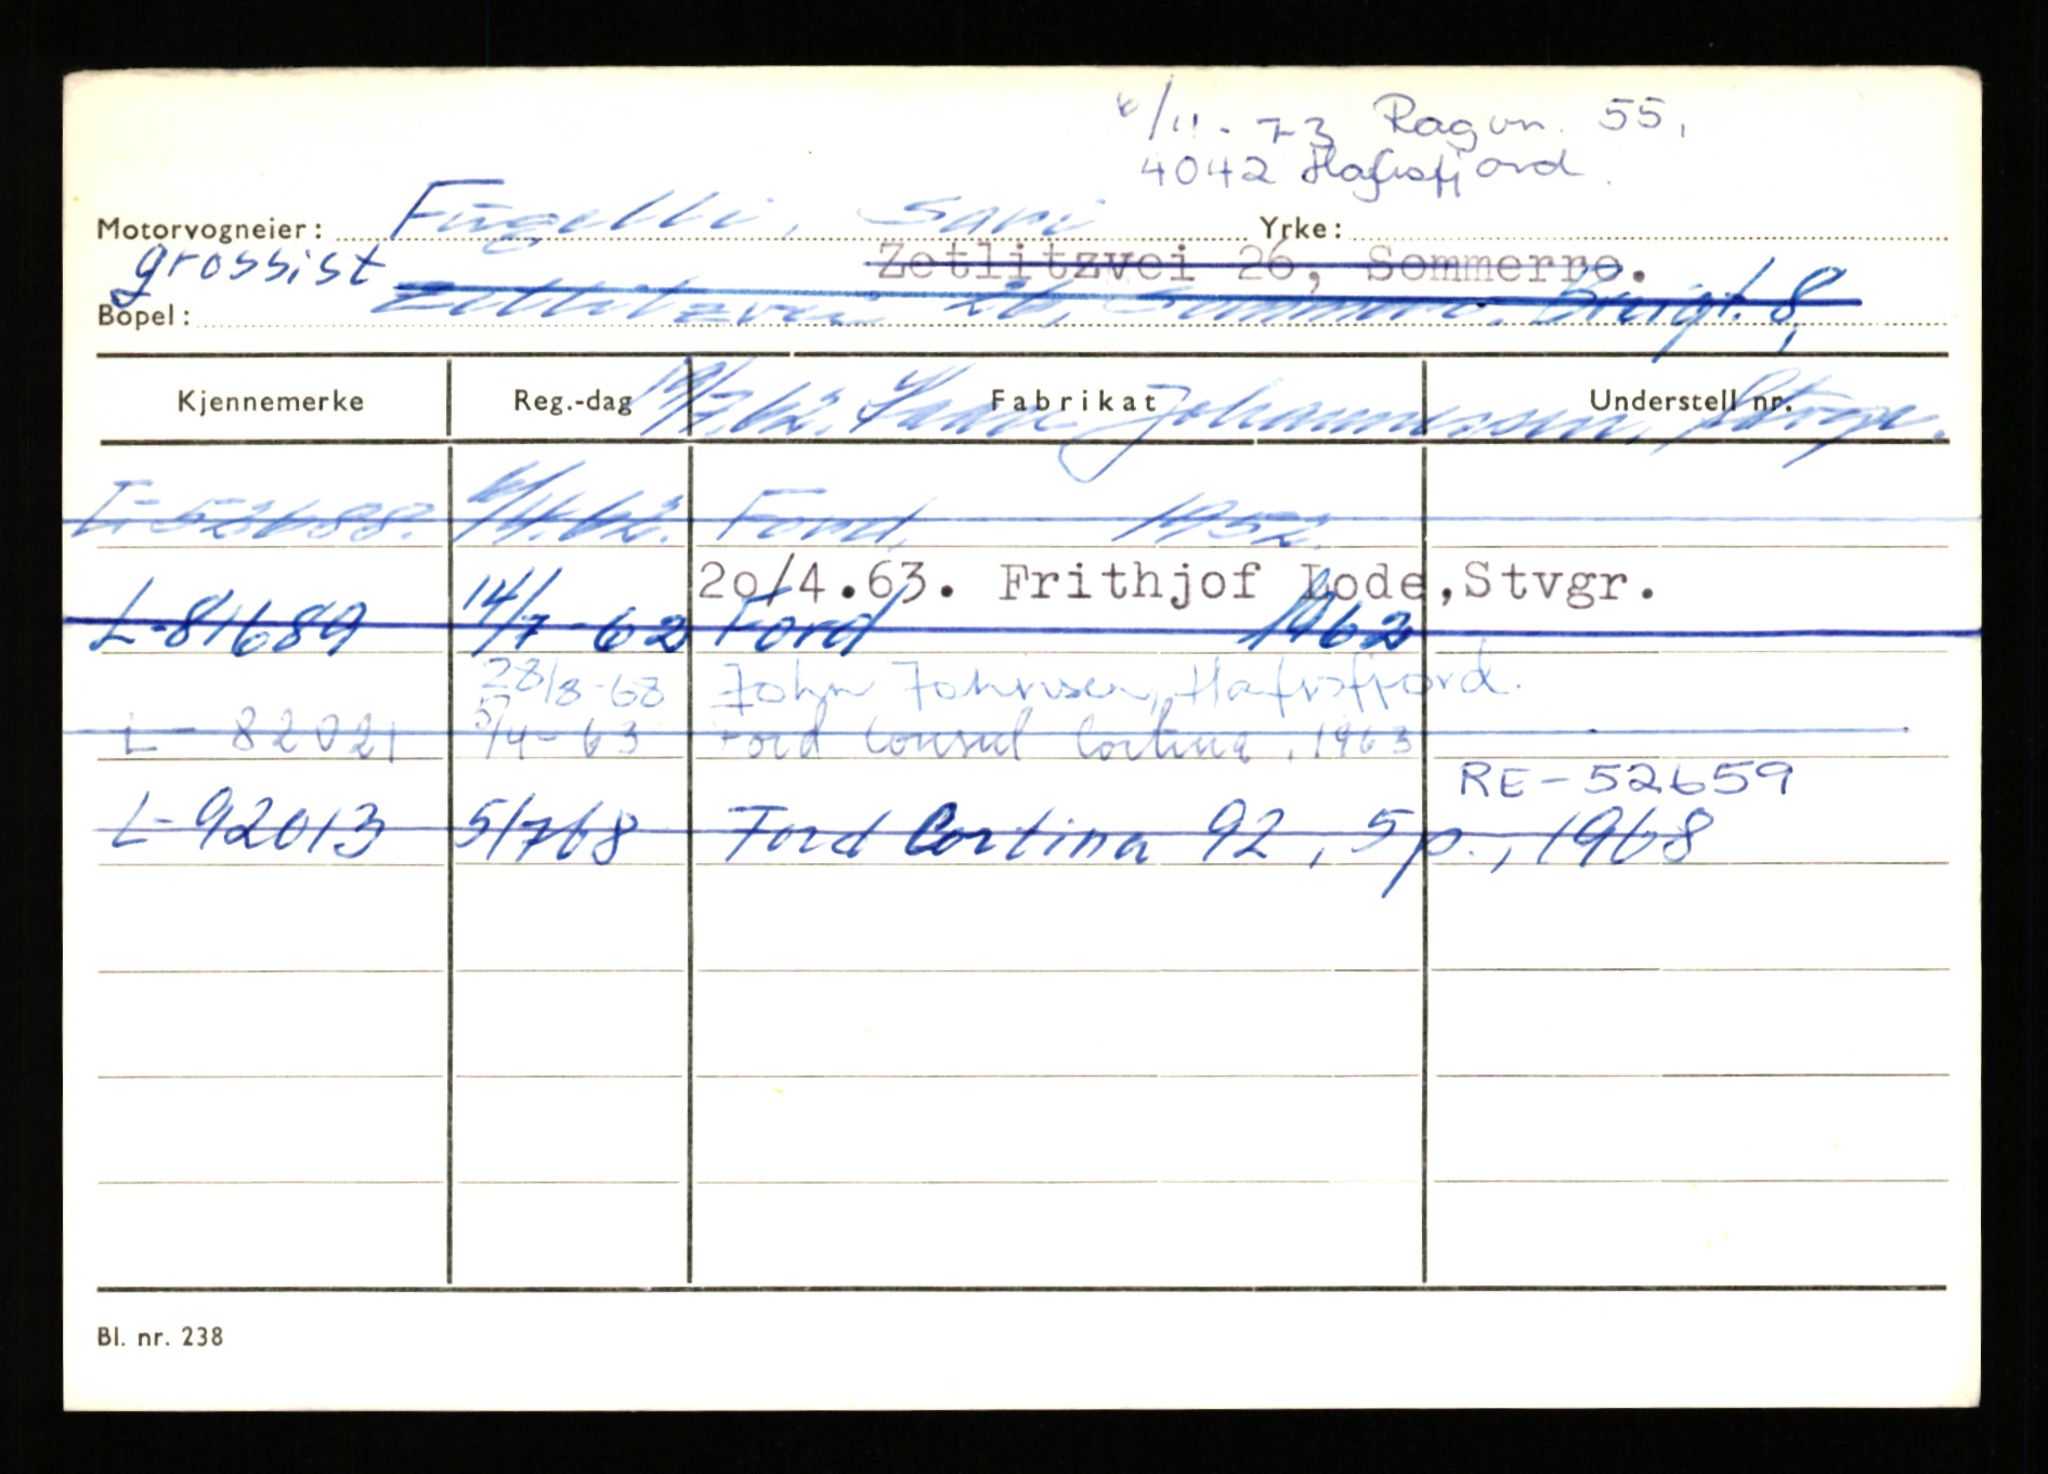 6/11-73 Ragvn. 55,
4042 Hafrsfjord.
Motorvogneier: Fugelli, Yrke:
grossist Zetlitzvei 26, Sommerro.
Bopel: Zetlitzvei 26, Sommero. Breigt. 8,
Kjennemerke Reg.-dag Fabrikat Understell nr.
19/7.62. Johannessen, Stvgr.
L-52688. 6/4.62. Ford, 1952.
20/4.63. Frithjof Lode,Stvgr.
L-81689 14/7-62 Ford 1962
28/8-68 John Johnsen, Hafrsfjord.
L-82021 5/4-63 Ford Consul Cortina, 1963
RE-52659
L-92013 5/768 Ford Cortina 92, 5p., 1968
Bl. nr. 238